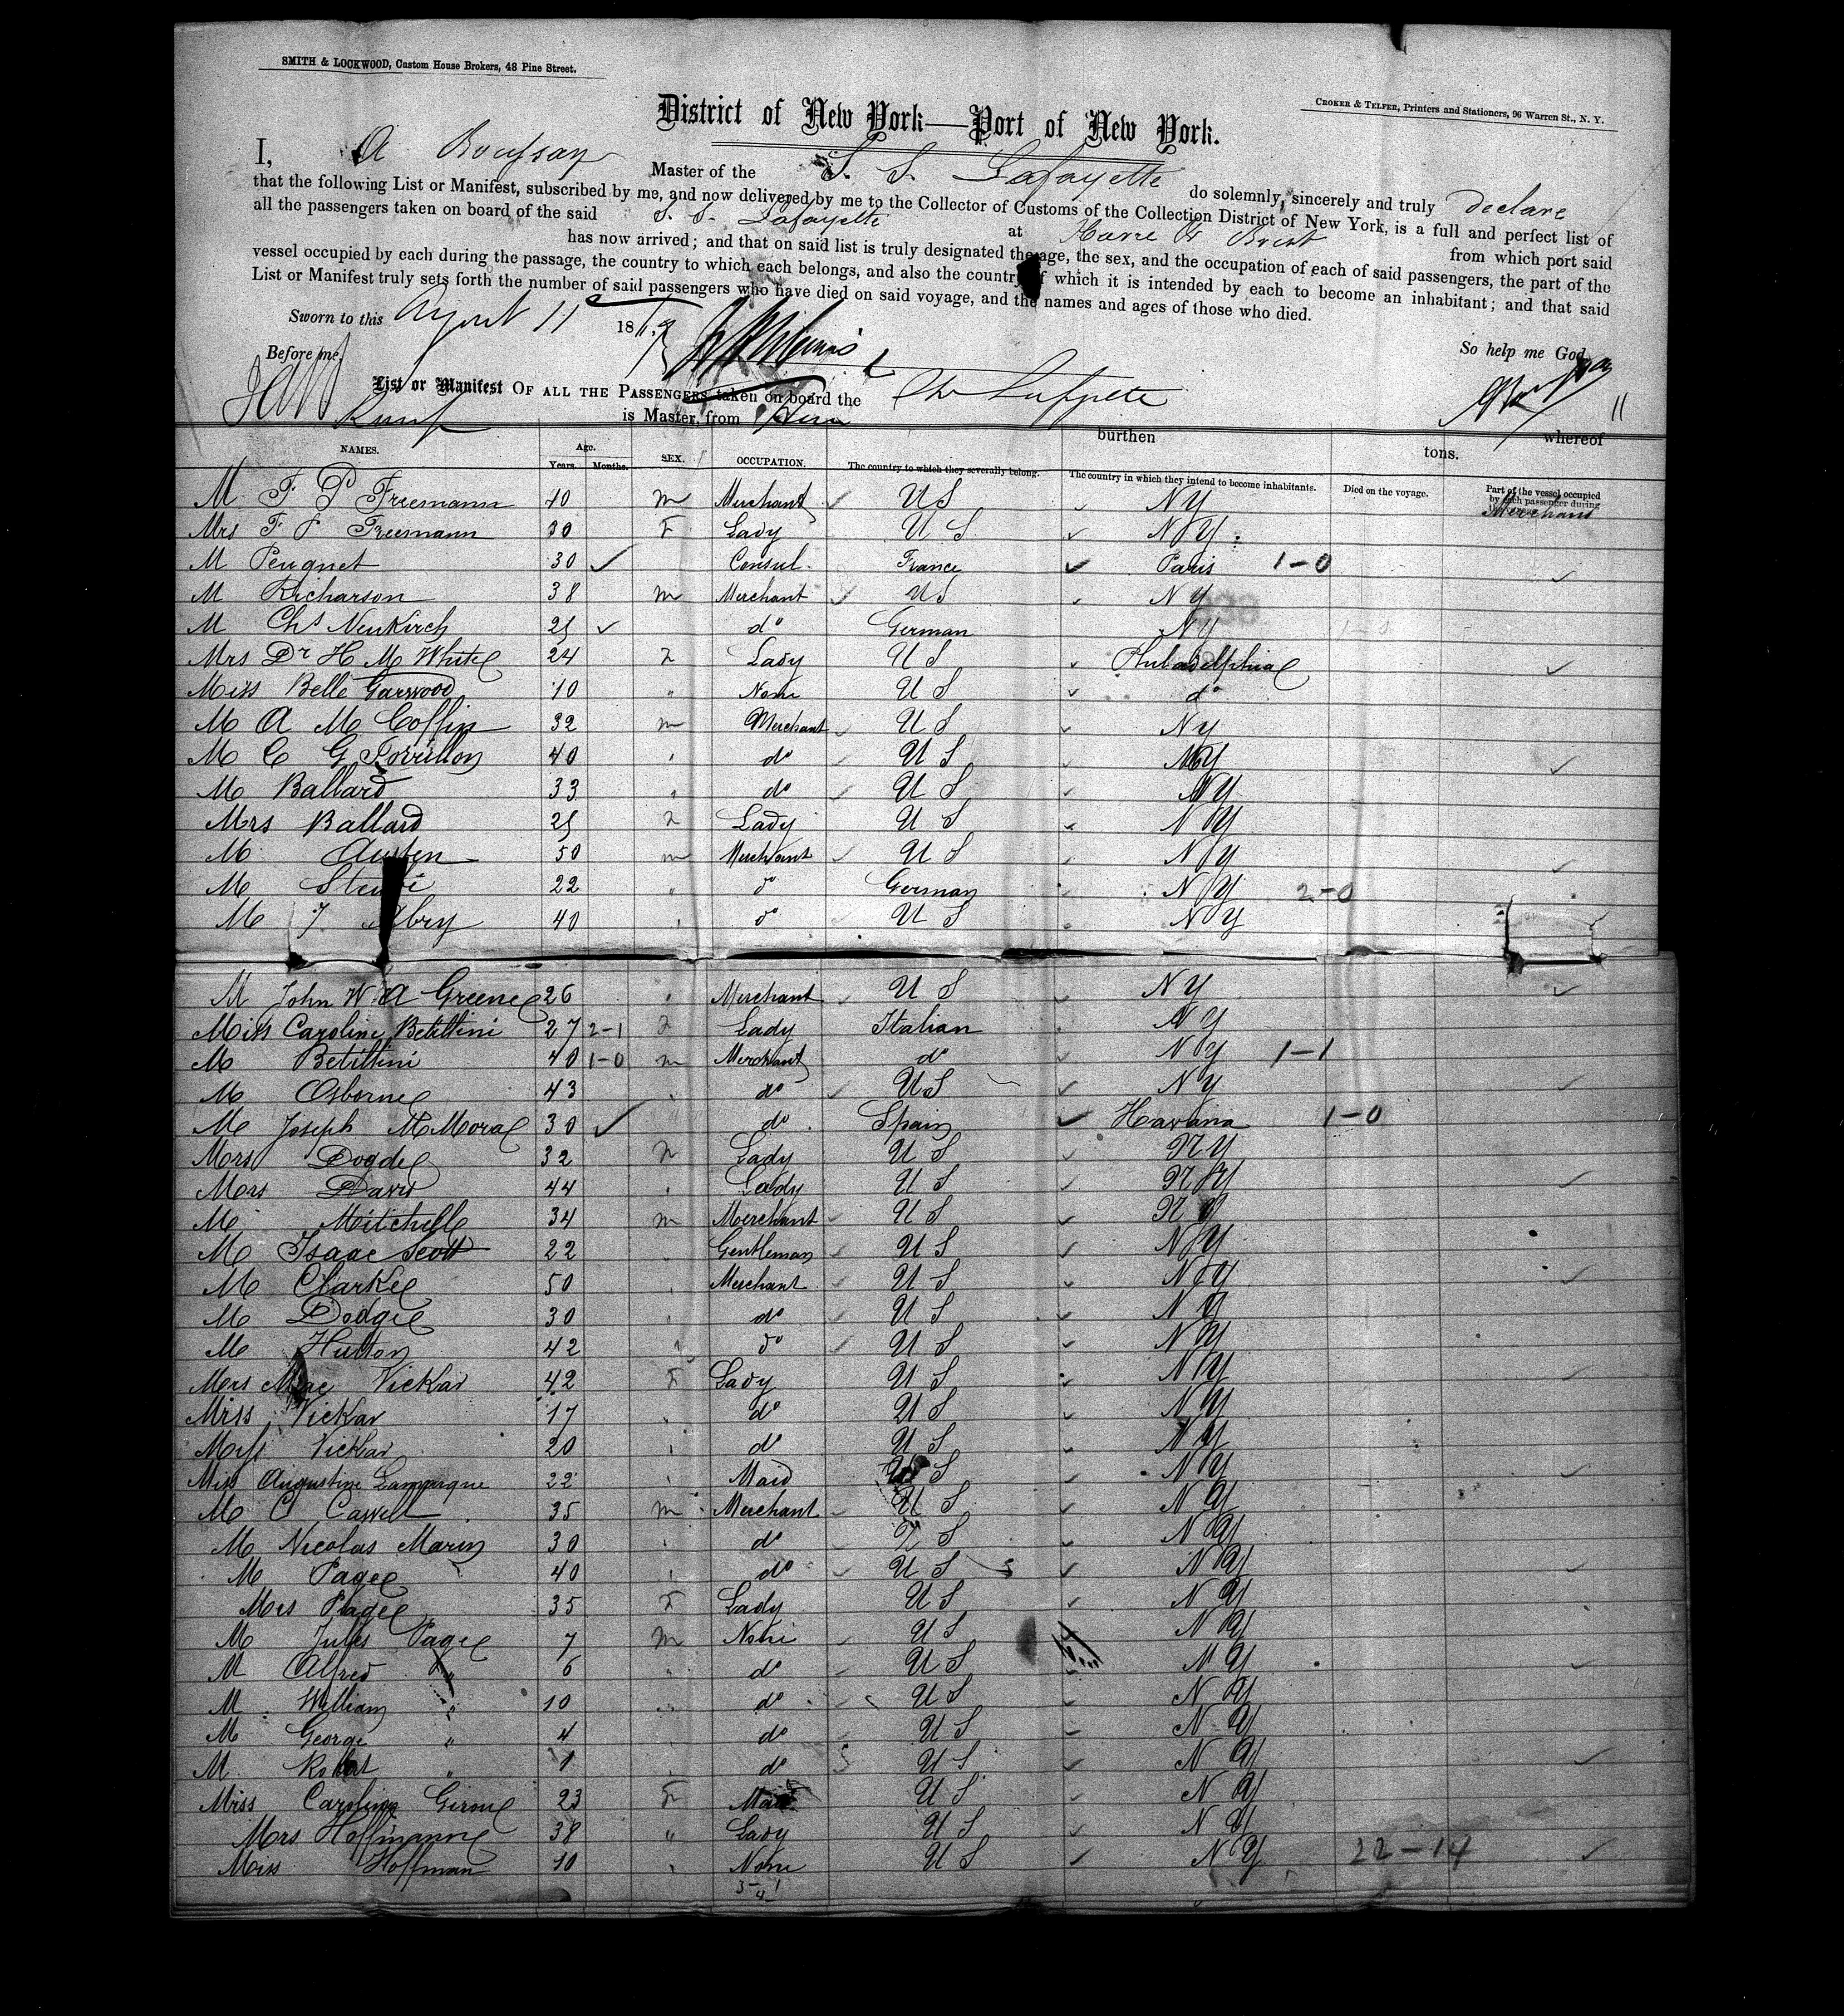 SMITH & LOCKWOOD, Custom House Brokers, 48 Pine Street.
CROKER & TELFER, Printers and Stationers, 96 Warren St., N. Y.
District of New York—Port of New York.
I, A Master of the S. S. Lafayette do solemnly, sincerely and truly declare
that the following List or Manifest, subscribed by me, and now delivered by me to the Collector of Customs of the Collection District of New York, is a full and perfect list of
all the passengers taken on board of the said S. S. Lafayette at Havre & Brest from which port said
has now arrived; and that on said list is truly designated the age, the sex, and the occupation of each of said passengers, the part of the
vessel occupied by each during the passage, the country to which each belongs, and also the country of which it is intended by each to become an inhabitant; and that said
List or Manifest truly sets forth the number of said passengers who have died on said voyage, and the names and ages of those who died.
Sworn to this August 11 18
So help me God
Before me,
List or Manifest OF ALL THE PASSENGERS taken on board the
is Master, from burthen tons. whereof
NAMES. Age. Years. Months. SEX. OCCUPATION. The country to which they severally belong. The country in which they intend to become inhabitants. Died on the voyage. Part of the vessel occupied by each passenger during
M F P Freemann 40 m Merchant U S N Y
Mrs F P Freemann 30 F Lady U S N Y
M Peugnet 30 Consul France Paris 1-0
M Richarson 38 m Merchant U S N Y
M Chs Neukirch 25 do German N Y
Mrs Dr H M White 24 F Lady U S Philadelphia
Miss Belle Garwood 10 " None U S do
M A M Coffin 32 m Merchant U S N Y
M C G 40 do U S N Y
M Ballard 33 do U S N Y
Mrs Ballard 25 F Lady U S N Y
M Austen 50 m Merchant U S N Y
M 22 do German N Y 2-0
M 40 do U S N Y
M John W. A Greene 26 Merchant U S N Y
Miss Caroline Betittini 27 2-1 F Lady Italian N Y
M Betittini 40 1-0 m Merchant do N Y 1-1
M Osborne 43 do U S N Y
M Joseph M Mora 30 do Spain Havana 1-0
Mrs Dogde 32 F Lady U S N Y
Mrs Davis 44 Lady U S N Y
M Mitchell 34 m Merchant U S N Y
M Isaac Scott 22 Gentleman U S N Y
M Clarke 50 Merchant U S N Y
M Dodge 30 do U S N Y
M Hutton 42 do U S N Y
Mrs Mac Vickar 42 F Lady U S N Y
Miss Vickar 17 do U S N Y
Miss Vickar 20 do U S N Y
Miss Augustine 22 Maid U S N Y
M C Caswell 35 m Merchant U S N Y
M Nicolas Marin 30 do U S N Y
M Page 40 do U S N Y
Mrs Page 35 F Lady U S N Y
M Jules Page 7 m None U S N Y
M Alfred " 6 do U S N Y
M William " 10 do U S N Y
M George " 4 do U S N Y
M Robert " 1 do U S N Y
Miss Caroline Giroue 23 F Maid U S N Y
Mrs Hoffmanne 38 " Lady U S N Y
Miss Hoffman 10 None U S N Y 22-14